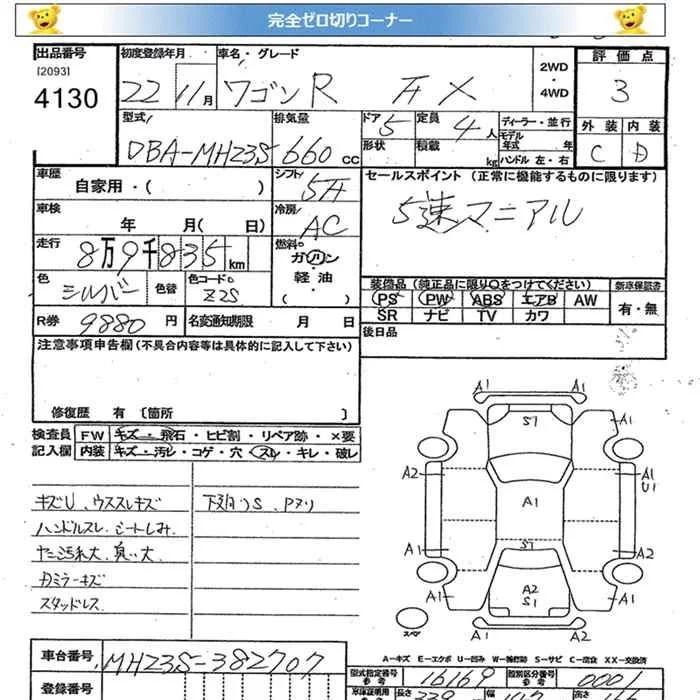 完全ゼロ切りコーナー
出品番号 初度登録年月 車名・グレード 2WD・4WD 評価点
[2093]
4130 22 11月 ワゴンR FX 3
型式 排気量 ドア 定員 ディーラー・並行 外装 内装
DBA-MH23S 660cc 5 4人 モデル年式 年 C D
形状 積載 kg ハンドル 左・右
車歴 シフト セールスポイント(正常に機能するものに限ります)
自家用・( ) 5F 5速マニアル
車検 冷房
年 月( 日) AC
走行 燃料
8万9千835km ガソリン・軽油・( )
色 シルバー 色替 色コードNo Z2S
装備品(純正品に限り○をつけてください) 新車保証書
PS PW ABS エアB AW 有・無
SR ナビ TV カワ
R券 9880円 名変通知期限 月 日
後日品
注意事項申告欄(不具合内容等は具体的に記入して下さい)
修復歴 有 [箇所 ]
検査員記入欄 FW キズ・飛石・ヒビ割・リペア跡・×要
内装 キズ・汚レ・コゲ・穴・スレ・キレ・破レ
キズU、ウススレキズ
下廻りS、Pヌリ
ハンドルスレ、シートしみ、
ヤニ汚れ大、臭い大
Dミラーキズ
スタッドレス
A1 A1
S7
A1
A2 A1
U1
A1
S7
A1 A2
A2
S1
スペア
A1 A2
A=キズ E=エクボ U=凹み W=補修跡 S=サビ C=腐食 XX=交換済
車台番号 MH23S-382707
型式指定番号 参考 16169 類別区分番号 参考 0001
登録番号
長さ 339 幅 高さ